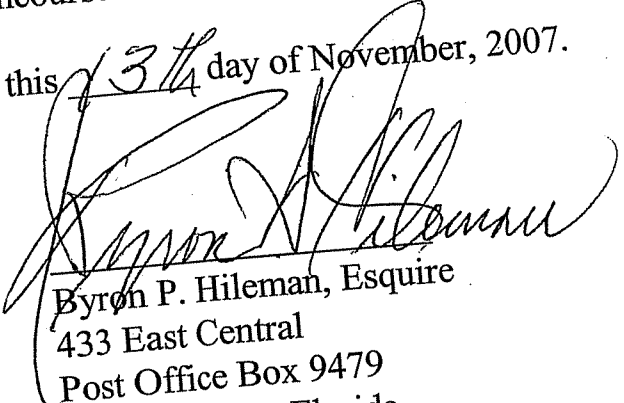 this 13th day of November, 2007.
Byron P. Hileman
Byron P. Hileman, Esquire
433 East Central
Post Office Box 9479